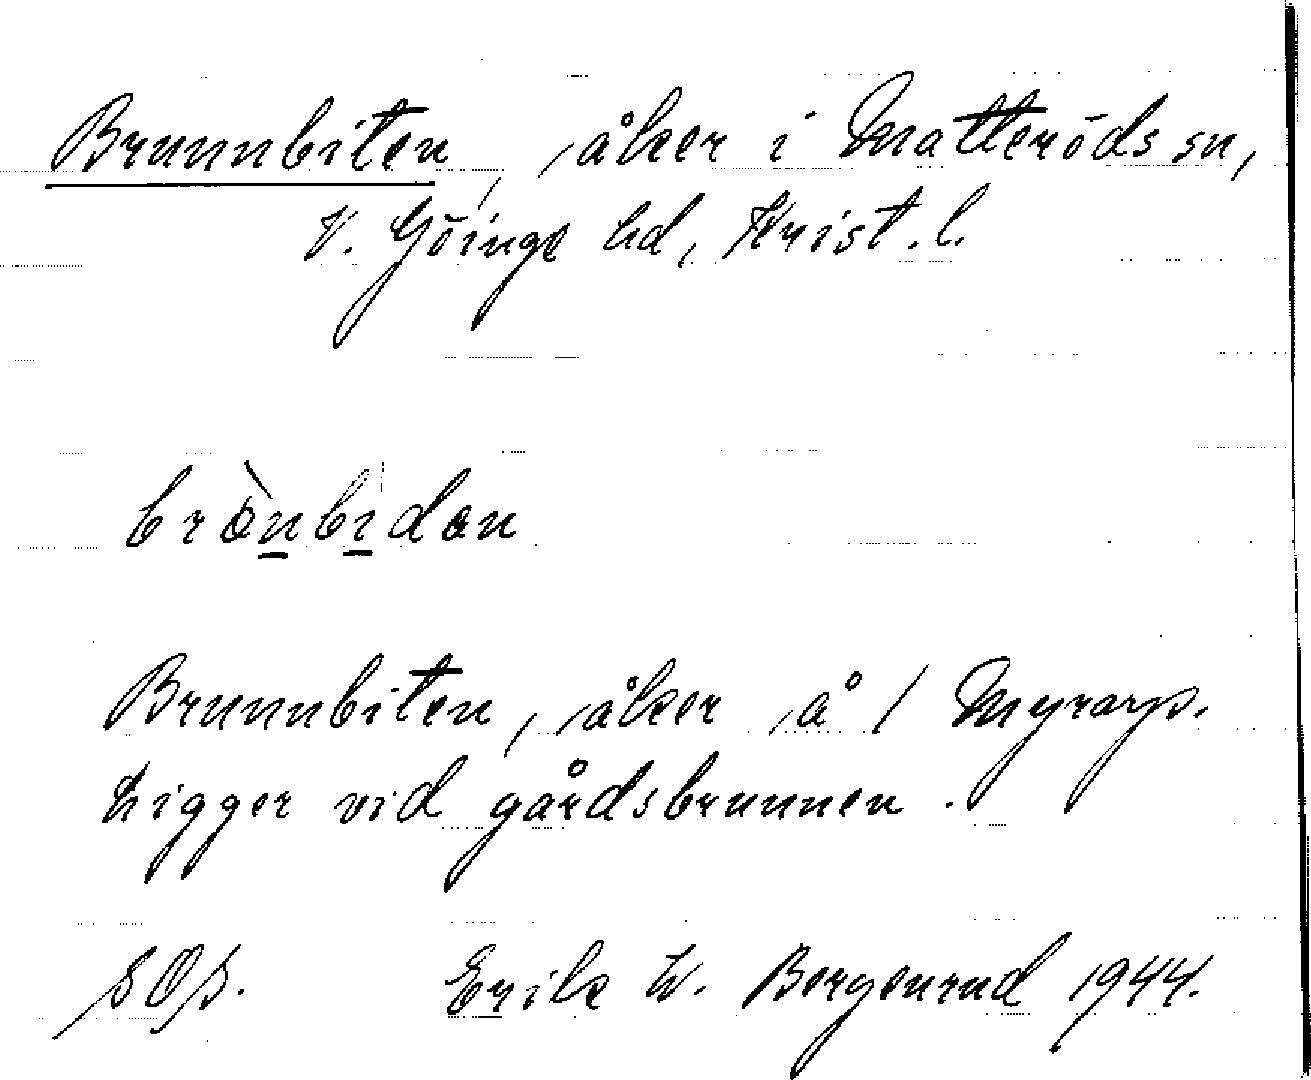 Brunnbiten, åker i Matteröds sn,
V. Göinge hd, Krist. l.
brònbìdən
Brunnbiten, åker å / Myrarp.
Ligger vid gårdsbrunnen.
SOS. Erik W. Bergenrud 1944.